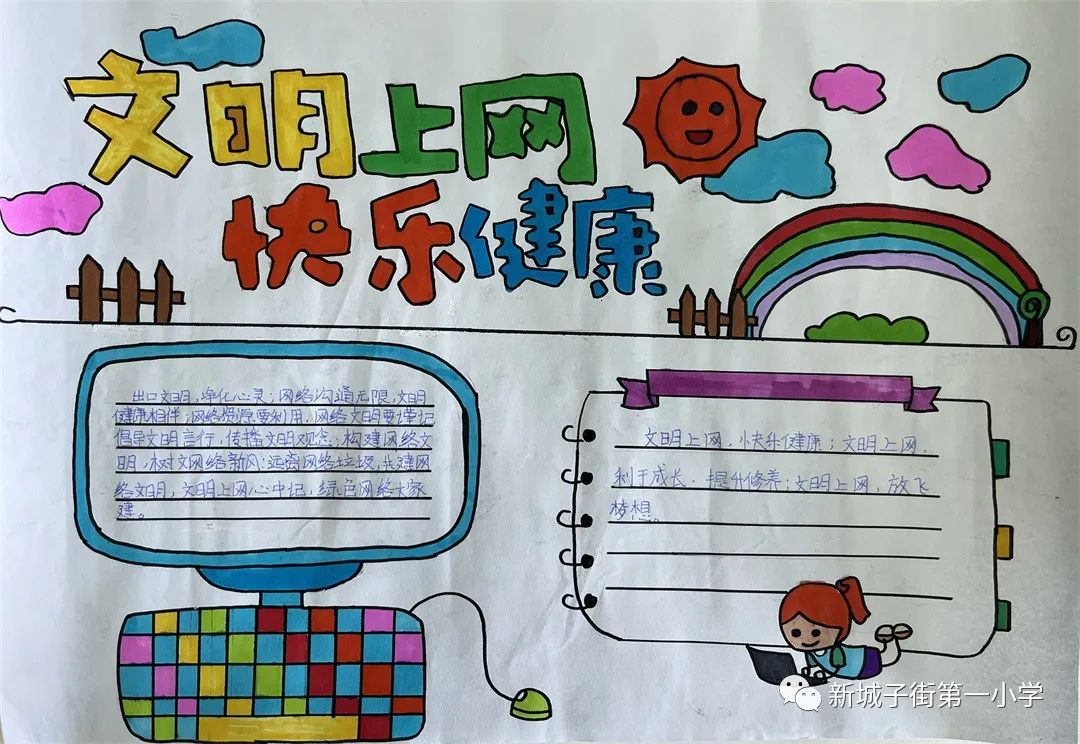 文明上网
快乐健康
出口文明,净化心灵;网络沟通无限,文明
健康相伴;网络资源要利用,网络文明要谨记
倡导文明言行,传播文明观念;构建网络文
明,树文网络新风;远离网络垃圾,共建网
络文明,文明上网心中记,绿色网络大家
建。
文明上网,快乐健康;文明上网,
利于成长,提升修养;文明上网,放飞
梦想。
新城子街第一小学